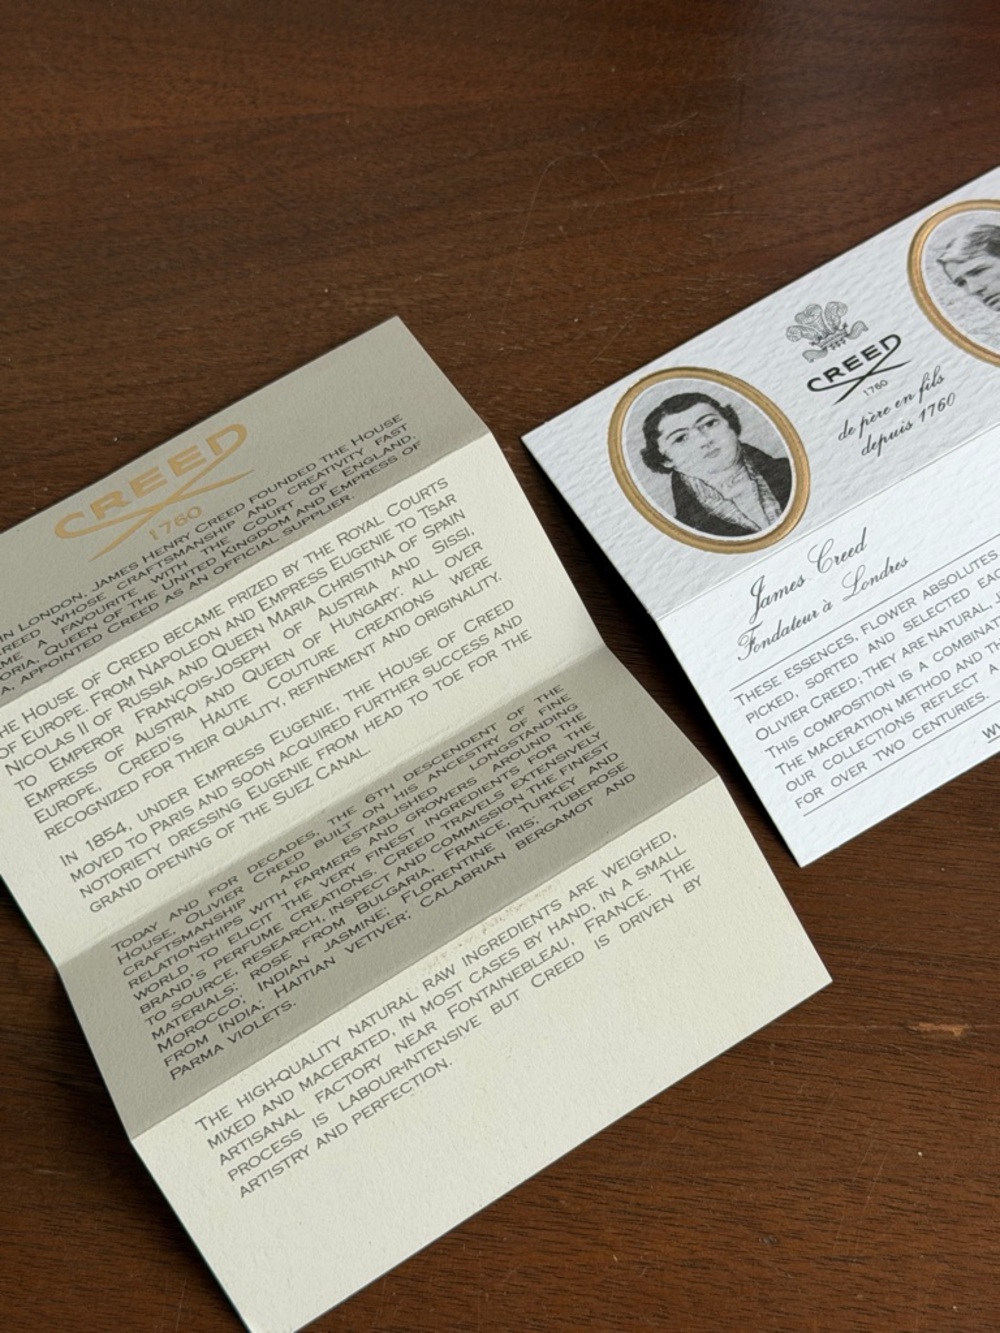 CREED
1760
IN LONDON, JAMES HENRY CREED FOUNDED THE HOUSE
REED WHOSE CRAFTSMANSHIP AND CREATIVITY FAST
ME A FAVOURITE WITH THE COURT OF ENGLAND.
ORIA, QUEEN OF THE UNITED KINGDOM AND EMPRESS OF
A, APPOINTED CREED AS AN OFFICIAL SUPPLIER.
HE HOUSE OF CREED BECAME PRIZED BY THE ROYAL COURTS
OF EUROPE. FROM NAPOLEON AND EMPRESS EUGENIE TO TSAR
NICOLAS II OF RUSSIA AND QUEEN MARIA CHRISTINA OF SPAIN
TO EMPEROR FRANÇOIS-JOSEPH OF AUSTRIA AND SISSI,
EMPRESS OF AUSTRIA AND QUEEN OF HUNGARY. ALL OVER
EUROPE, CREED'S HAUTE COUTURE CREATIONS WERE
RECOGNIZED FOR THEIR QUALITY, REFINEMENT AND ORIGINALITY.
IN 1854, UNDER EMPRESS EUGENIE, THE HOUSE OF CREED
MOVED TO PARIS AND SOON ACQUIRED FURTHER SUCCESS AND
NOTORIETY DRESSING EUGENIE FROM HEAD TO TOE FOR THE
GRAND OPENING OF THE SUEZ CANAL.
TODAY AND FOR DECADES, THE 6TH DESCENDENT OF THE
HOUSE, OLIVIER CREED BUILT ON HIS ANCESTRY OF FINE
CRAFTSMANSHIP AND ESTABLISHED LONGSTANDING
RELATIONSHIPS WITH FARMERS AND GROWERS AROUND THE
WORLD TO ELICIT THE VERY FINEST INGREDIENTS FOR THE
BRAND'S PERFUME CREATIONS. CREED TRAVELS EXTENSIVELY
TO SOURCE, RESEARCH, INSPECT AND COMMISSION THE FINEST
MATERIALS: ROSE FROM BULGARIA, FRANCE, TURKEY AND
MOROCCO; INDIAN JASMINE; FLORENTINE IRIS; TUBEROSE
FROM INDIA; HAITIAN VETIVER; CALABRIAN BERGAMOT AND
PARMA VIOLETS.
THE HIGH-QUALITY NATURAL RAW INGREDIENTS ARE WEIGHED,
MIXED AND MACERATED, IN MOST CASES BY HAND, IN A SMALL
ARTISANAL FACTORY NEAR FONTAINEBLEAU, FRANCE. THE
PROCESS IS LABOUR-INTENSIVE BUT CREED IS DRIVEN BY
ARTISTRY AND PERFECTION.
CREED
1760
de père en fils
depuis 1760
James Creed
Fondateur à Londres
THESE ESSENCES, FLOWER ABSOLUTES
PICKED, SORTED AND SELECTED EAC
OLIVIER CREED; THEY ARE NATURAL,
THIS COMPOSITION IS A COMBINAT
THE MACERATION METHOD AND TH
OUR COLLECTIONS REFLECT A
FOR OVER TWO CENTURIES.
W